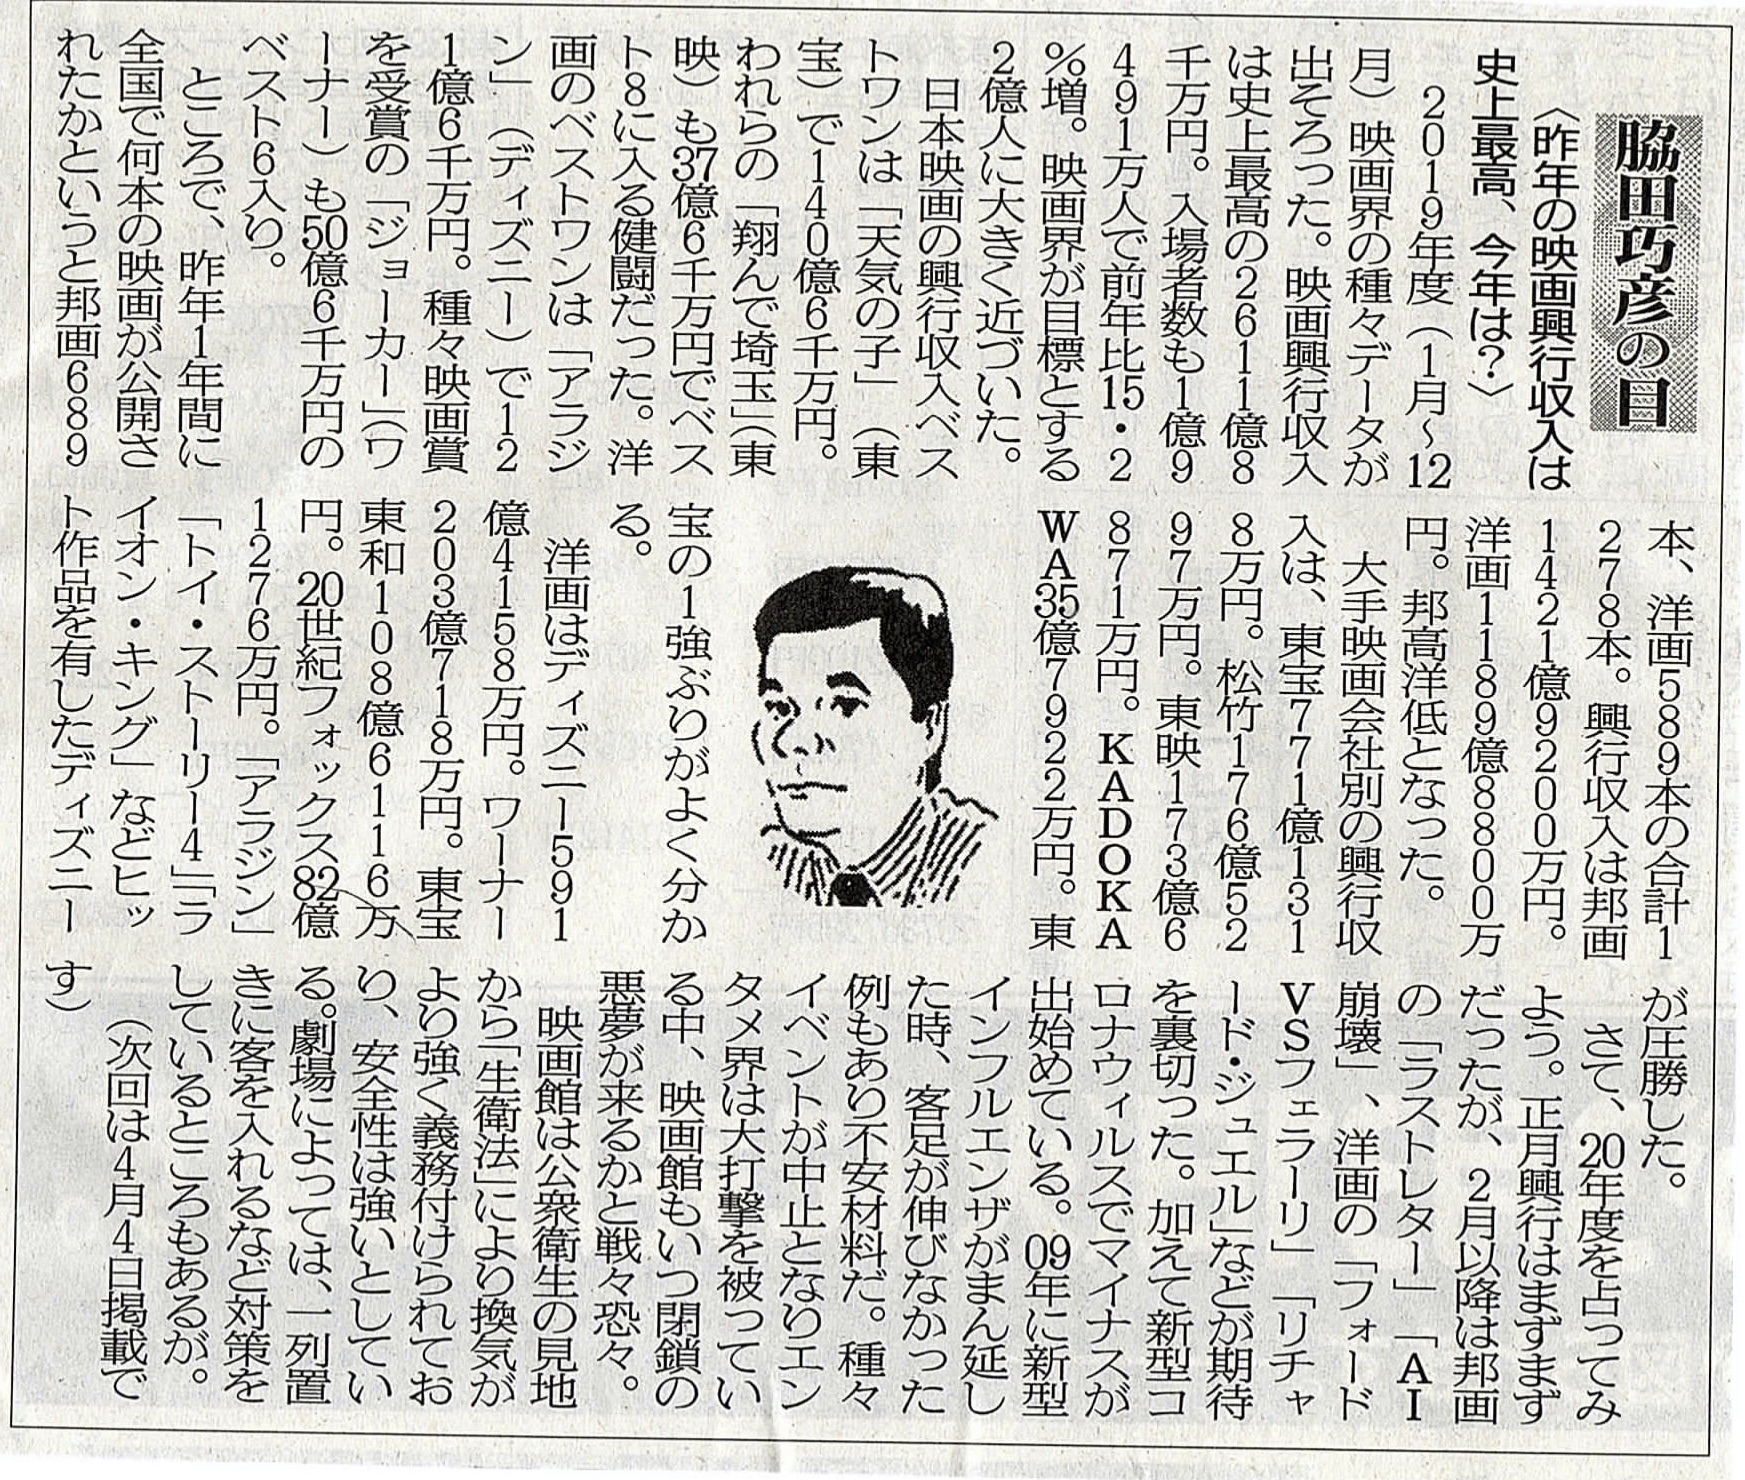 脇田巧彦の目
〈昨年の映画興行収入は
史上最高、今年は?〉
２０１９年度（１月～12
月）映画界の種々データが
出そろった。映画興行収入
は史上最高の２６１１億８
千万円。入場者数も１億９
４９１万人で前年比15・２
％増。映画界が目標とする
２億人に大きく近づいた。
日本映画の興行収入ベス
トワンは「天気の子」（東
宝）で１４０億６千万円。
われらの「翔んで埼玉」（東
映）も37億６千万円でベス
ト８に入る健闘だった。洋
画のベストワンは「アラジ
ン」（ディズニー）で１２
１億６千万円。種々映画賞
を受賞の「ジョーカー」（ワ
ーナー）も50億６千万円の
ベスト６入り。
ところで、昨年１年間に
全国で何本の映画が公開さ
れたかというと邦画６８９
本、洋画５８９本の合計１
２７８本。興行収入は邦画
１４２１億９２００万円。
洋画１１８９億８８００万
円。邦高洋低となった。
大手映画会社別の興行収
入は、東宝７７１億１３１
８万円。松竹１７６億５２
９７万円。東映１７３億６
８７１万円。ＫＡＤＯＫＡ
ＷＡ35億７９２２万円。東
宝の１強ぶりがよく分か
る。
洋画はディズニー５９１
億４１５８万円。ワーナー
２０３億７１８万円。東宝
東和１０８億６１１６万
円。20世紀フォックス82億
１２７６万円。「アラジン」
「トイ・ストーリー４」「ラ
イオン・キング」などヒッ
ト作品を有したディズニー
が圧勝した。
さて、20年度を占ってみ
よう。正月興行はまずまず
だったが、２月以降は邦画
の「ラストレター」「ＡＩ
崩壊」、洋画の「フォード
ＶＳフェラーリ」「リチャ
ード・ジュエル」などが期待
を裏切った。加えて新型コ
ロナウィルスでマイナスが
出始めている。09年に新型
インフルエンザがまん延し
た時、客足が伸びなかった
例もあり不安材料だ。種々
イベントが中止となりエン
タメ界は大打撃を被ってい
る中、映画館もいつ閉鎖の
悪夢が来るかと戦々恐々。
映画館は公衆衛生の見地
から「生衛法」により換気が
より強く義務付けられてお
り、安全性は強いとしてい
る。劇場によっては、一列置
きに客を入れるなど対策を
しているところもあるが。
（次回は４月４日掲載で
す）